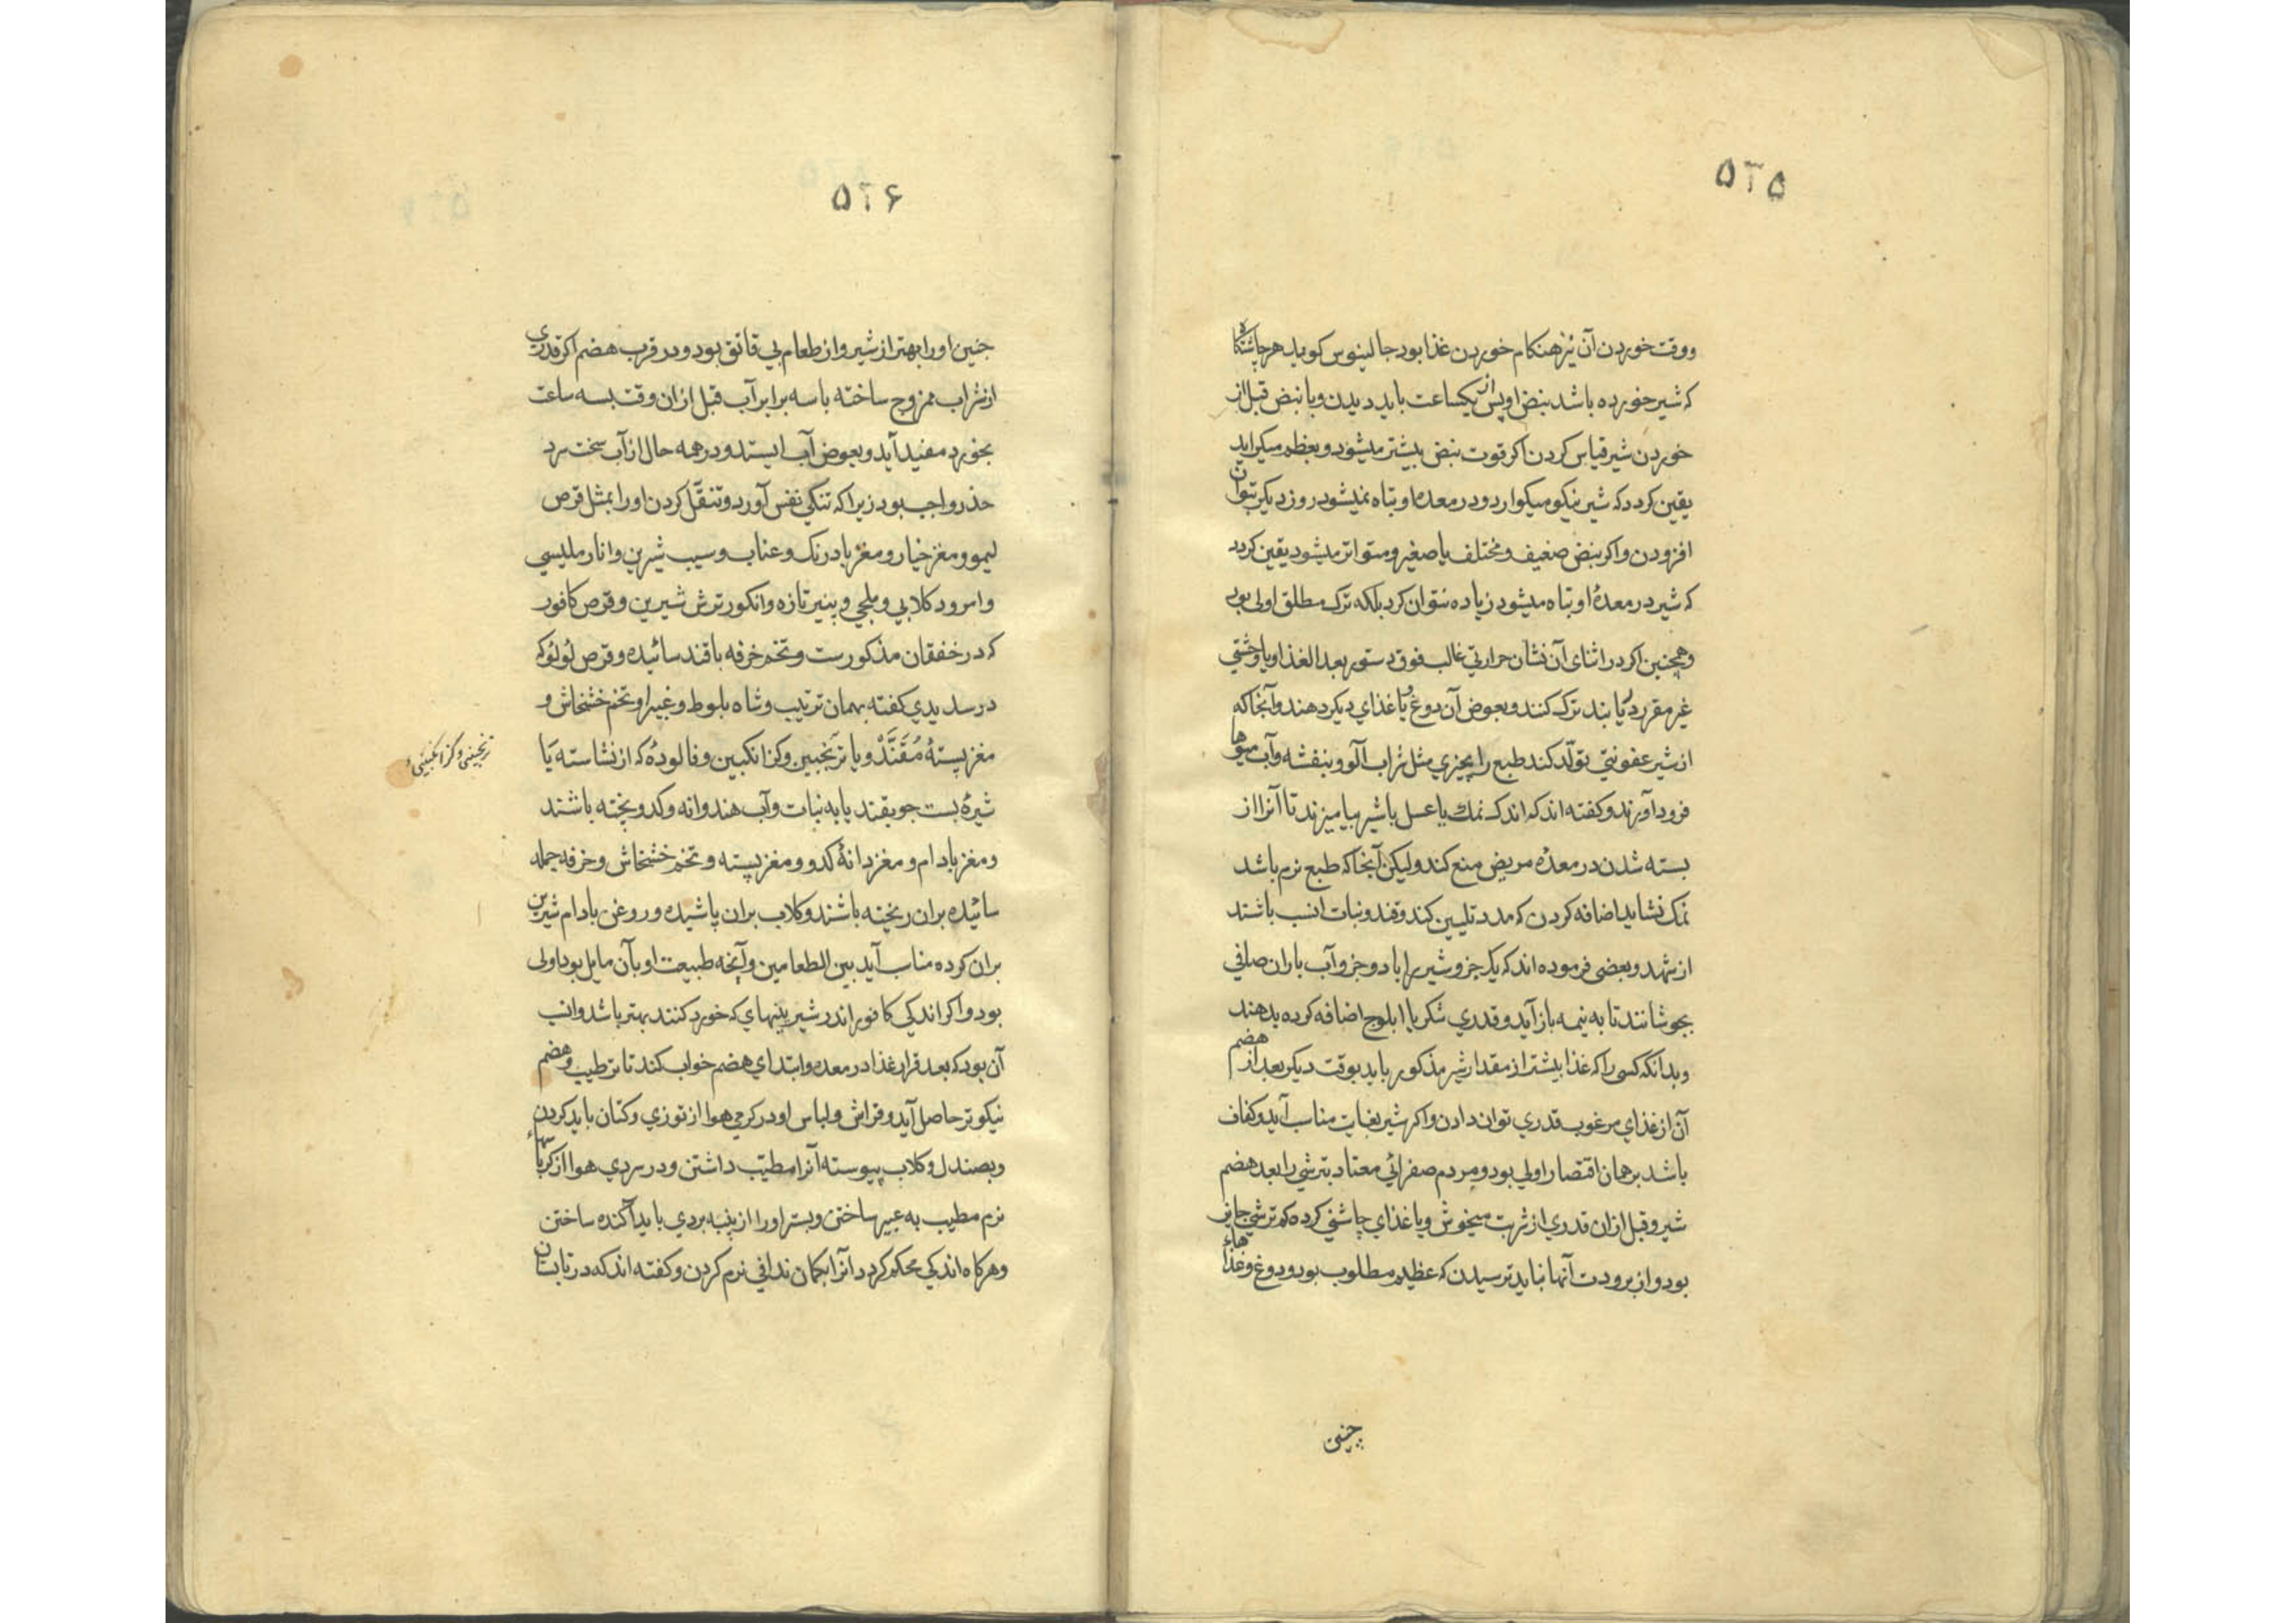 ۵۲۵
ووقت خوردن آن نیز هنکام خوردن غذا بود جالینوس کوید هر چاشتکاه
که شیر خورده باشد نبض او پس از یکساعت باید دیدن و با نبض قبل از
خوردن شیر قیاس کردن اکر قوت نبض بیشتر میشود و بعظم میکراید
یقین کردد که شیر نیکو میکوارد و در معده او تباه نمیشود روز دیکر بتوان
افزودن و اکر نبض ضعیف و مختلف یا صغیر و متواتر میشود یقین کردد
که شیر در معدهٔ او تباه میشود زیاده نتوان کرد بلکه ترک مطلق اولی بود
وهمچنین اکر در اثنای آن نشان حرارتی غالب فوق دستور بعد الغذا و یا وحشتی
غیر مقرر یابند ترک کنند و بعوض آن دوغ و یا غذای دیکر دهند وآنجا که
از شیر عفونتی تولّد کند طبع را بچیزی مثل شراب آلو و بنفشه وآب میوها
فرود آورند و کفته اند که اندک نمک یا عسل با شیر بیامیزند تا آنرا از
بسته شدن در معدهٔ مریض منع کند ولیکن آنجا که طبع نرم باشد
نمک نشاید اضافه کردن که مدد تلیین کند و قند و نبات انسب باشند
از شهد و بعضی فرموده اند که یک جزو شیر را با دو جزو آب باران صافی
بجوشانند تا به نیمه باز آید و قدری شکر یا ابلوج اضافه کرده بدهند
وبدانکه کسی را که غذا بیشتر از مقدار شیر مذکور باید بوقت دیکر بعد از هضم
آن از غذای مرغوب قدری توان دادن و اکر شیر بغایت مناسب آید و کفاف
باشد بر همان اقتصار اولی بود و مردم صفرائی معتاد بترشی را بعد هضم
شیر و قبل از ان قدری از شربت میخوش و یا غذای چاشنی کرده کم ترشی جایز
بود و از برودت آنها نباید ترسیدن که عظیم مطلوب بود و دوغ و غذاهاء
چنین
۵۲۶
چنین او را بهتر از شیر و از طعام بی قاتق بود و در قرب هضم اکر قدری
از شراب ممزوج ساخته با سه برابر آب قبل از ان وقت بسه ساعت
بخورد مفید آید و بعوض آب ایستد و در همه حال از آب سخت سرد
حذر واجب بود زیرا که تنکی نفس آورد و تنقّل کردن او را بمثل قرص
لیمو و مغز خیار و مغز بادرنک و عناب و سیب شیرین و انار ملیسی
و امرود کلابی و بلخی و پنیر تازه و انکور ترش شیرین و قرص کافور
که در خفقان مذکورست و تخم خرفه با قند سائیده و قرص لؤلؤ که
در سل یدی کفته بهمان ترتیب و شاه بلوط و غبیرا و تخم خشخاش و
مغز پستهٔ مُقَنَّدْ و یا ترنجبین و کزانکبین و فالودهٔ که از نشاسته یا
ترنجبینی و کزانکبینیء
شیرهٔ بست جو بقند یا به نبات و آب هندوانه و کدو پخته باشند
ومغز بادام و مغز دانهٔ کدو و مغز پسته و تخم خشخاش و خرفه جمله
سائیده بران ریخته باشند و کلاب بران پاشیده و روغن بادام شیرین
بران کرده مناسب آید بین الطعامین وآنچه طبیعت او بآن مایل بود اولی
بود و اکر اندکی کافور اندر شیرینیهای که خورد کنند بهتر باشد و انسب
آن بود که بعد قرار غذا در معده و ابتدای هضم خواب کند تا ترطیب و هضم
نیکوتر حاصل آید و فراش و لباس او در کرمی هوا از توزی و کتان باید کردن
وبصندل و کلاب پیوسته آنرا مطیّب داشتن و در سردی هوا از کرباسهاء
نرم مطیب به عبیر ساختن و بستر او را از پنبه بردی باید آکنده ساختن
وهرکاه اندکی محکم کردد آنرا بکمان ندافی نرم کردن و کفته اند که در تابستان